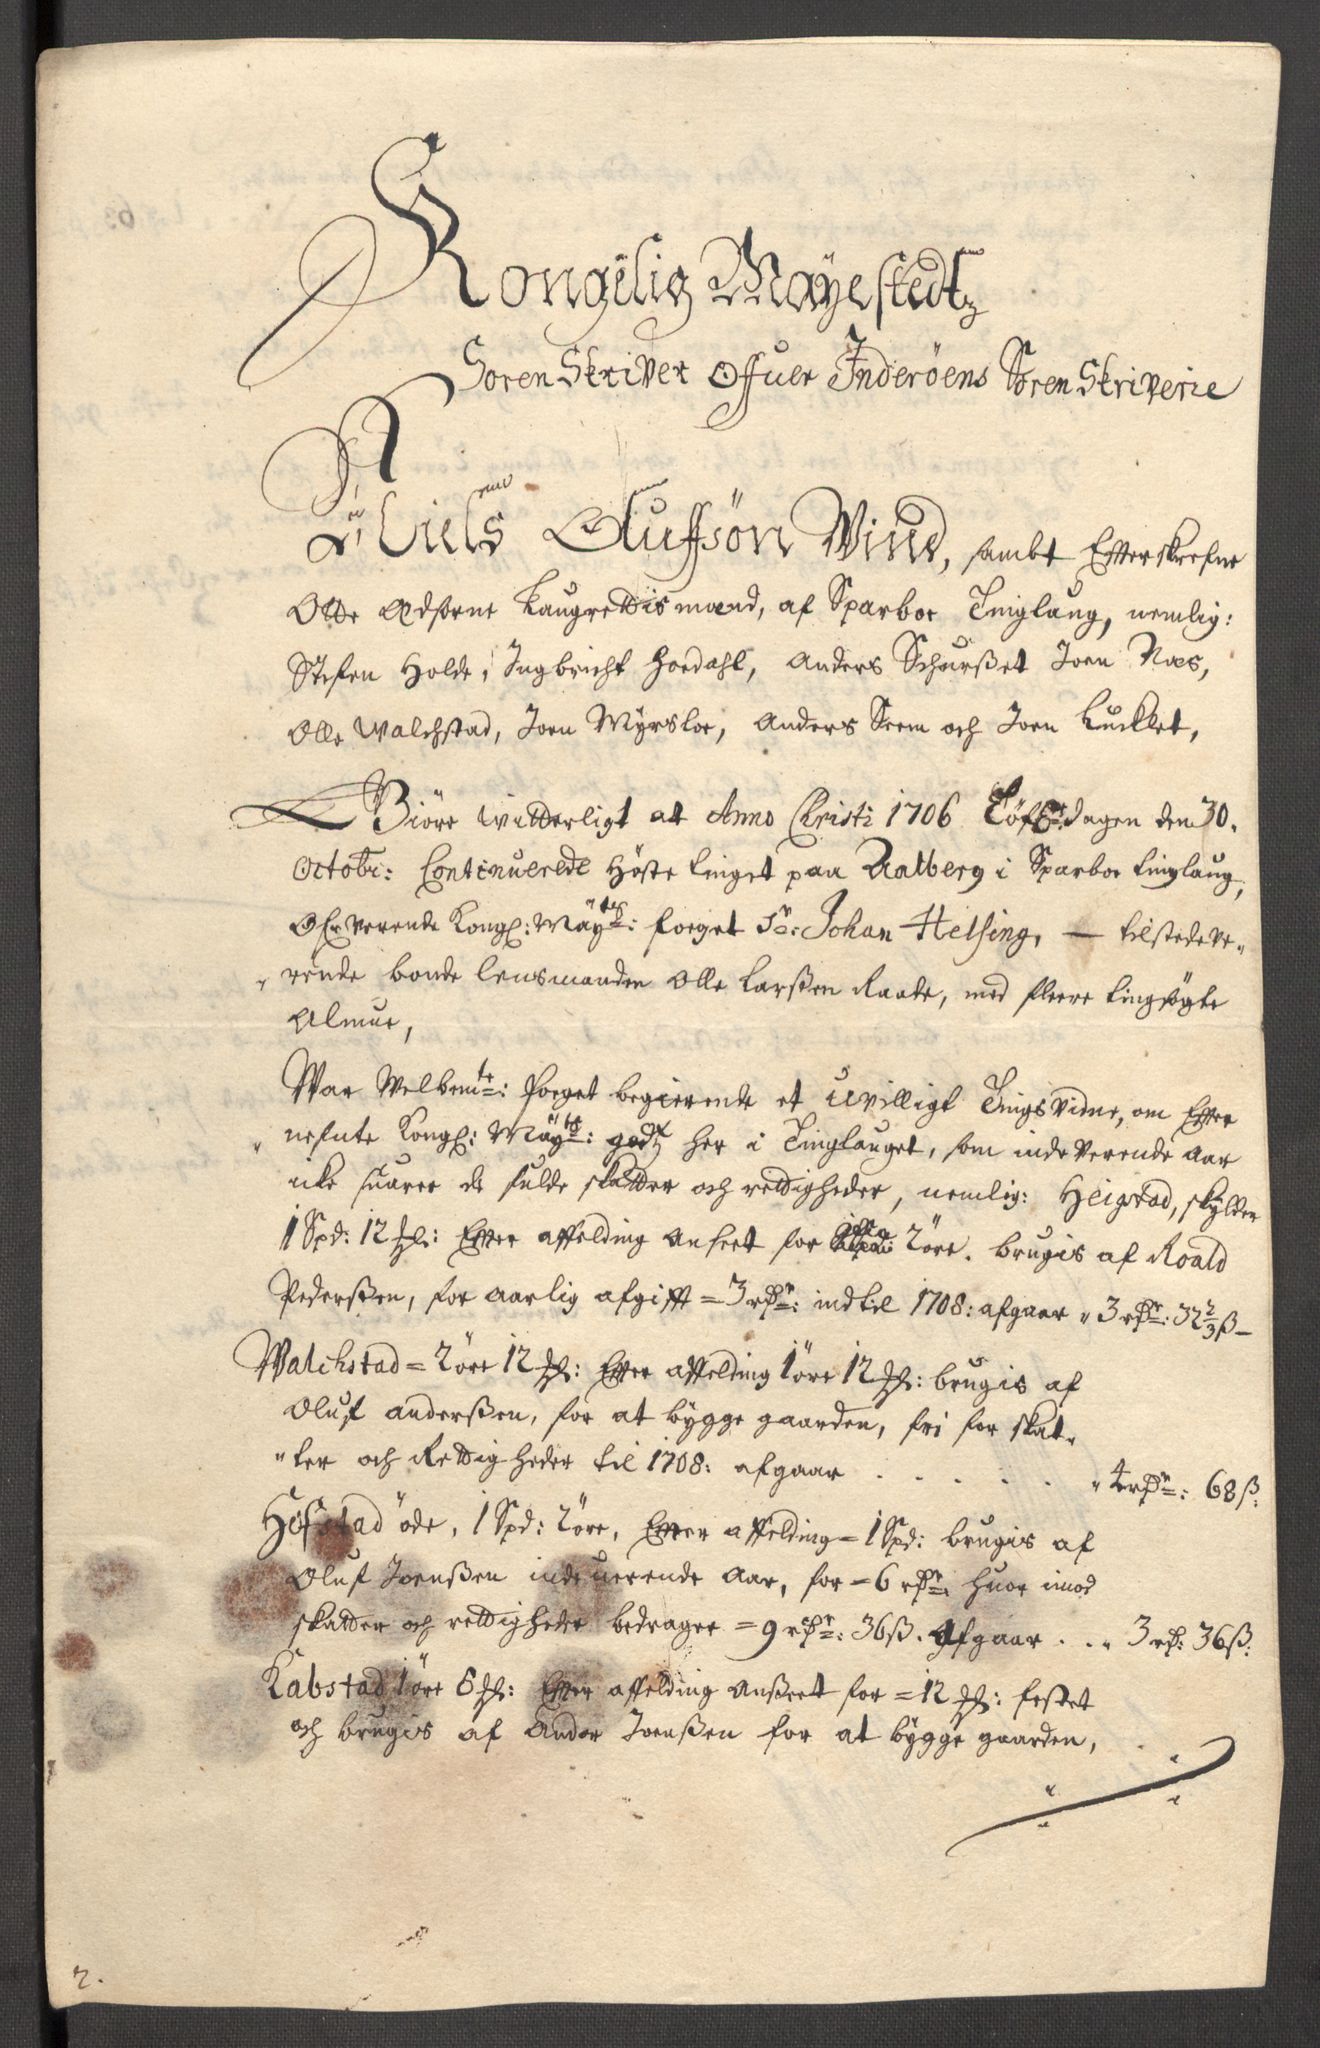 Kongelig Mayestedtz
Soren Skriver Offuer Inderöens Soren Skriverie
Niels Oluffsön Wind, sambt Efterskrefne
Otte Edsorne Laugrettis mænd, af Sparboe Tinglaug, nemlig:
Stefen Holde, Ingbricht Hoedahl, Anders Schurßet Joen Næs,
Olle Walchstad, Joen Myrsloe, Anders Seem och Joen Lucklet,
Giöre witterligt at Anno Christi 1706 Löfverdagen den 30.
Octobr: Continuerede Höste tinget paa Aalberg i Sparboe tinglaug,
Ofververende Kongl: Mayts: foeget Sr: Johan Helsing, — tilstedeve-
rende bonde lensmanden Olle Larßen Raade, med fleere tingsögte
Almue,
War Welbemte: foeget begierende et uvilligt Tings Vidne, om Efter
nefnte Kongl: Mayts: godz her i Tinglauget, som indeverende aar
icke suarer de fulde skatter och rettigheder, nemlig: Heigstad, skylder
1 Spd: 12 ₰l: Efter affelding anseet for 2 öre. brugis af Roald
Pederßen, for aarlig afgifft = 3 rdr: indtil 1708: afgaar " 3 rdr: 32 2/3 ß –
Walchstad = 2 öre 12 ₰l: Efter affelding 1 öre 12 ₰l: brugis af
Oluf Anderßen, for at bygge gaarden, fri for skat-
"ter och Rettigheder til 1708: afgaar . . . . . " 4 rdr: 68 ß:
Hofstad öde, 1 Spd: 2 öre, Efter affelding = 1 Spd: brugis af
Oluf Joenßen indeuerende Aar, for = 6 rdr: huor imod
skatter och rettigheder bedrager = 9 rdr: 36 ß. Afgaar . . " 3 rd: 36 ß:
Kabstad 1 öre 6 ₰l: Efter affelding Anßeet for = 12 ₰l: festet
och brugis af Ander Joenßen for at bygge gaarden,
2.